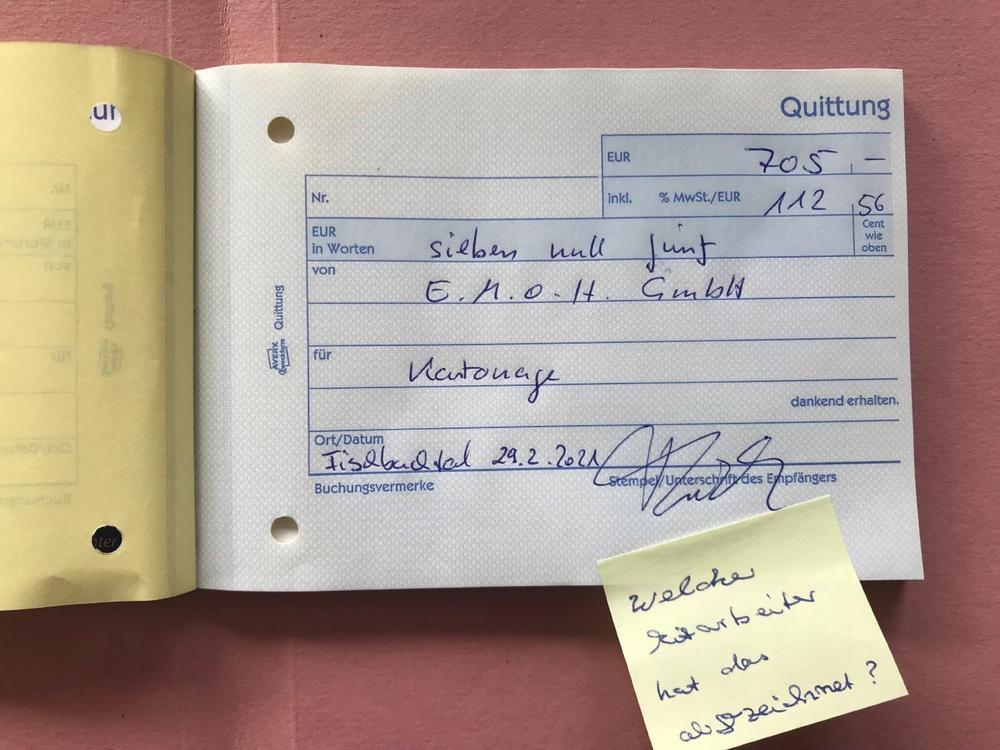 ur
nter
Quittung
EUR 705 , —
Nr.
inkl. % MwSt./EUR 112 56
EUR
in Worten sieben null fünf
Cent
wie
oben
von E.M.O.H. GmbH
AVERY
Zweckform
Quittung
für Kartonage
dankend erhalten.
Ort/Datum
Fischbachtal 29.2.2021
Buchungsvermerke Stempel/Unterschrift des Empfängers
Welcher
Mitarbeiter
hat das
abgezeichnet?